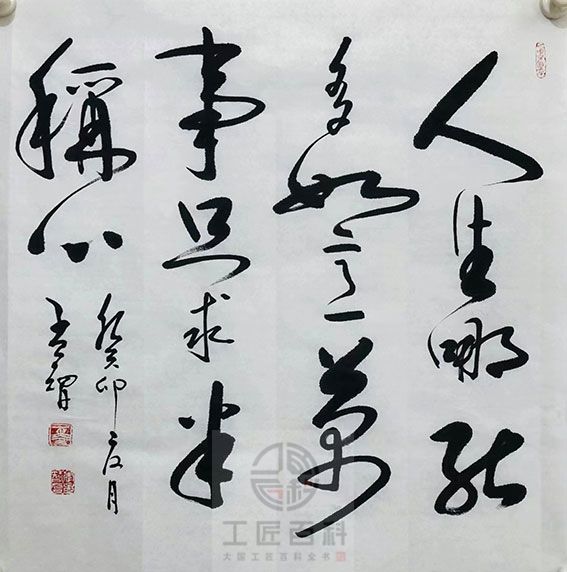 人生哪能
多如意萬
事只求半
稱心
癸卯夏月
工匠百科
大国工匠百科全书